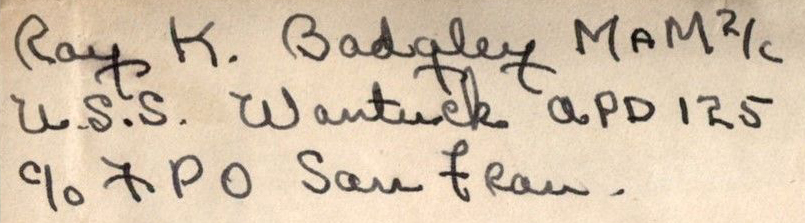 Ray K. Badgley MAM 2/c
U.S.S. Wantuck APD 125
c/o FPO San Fran.